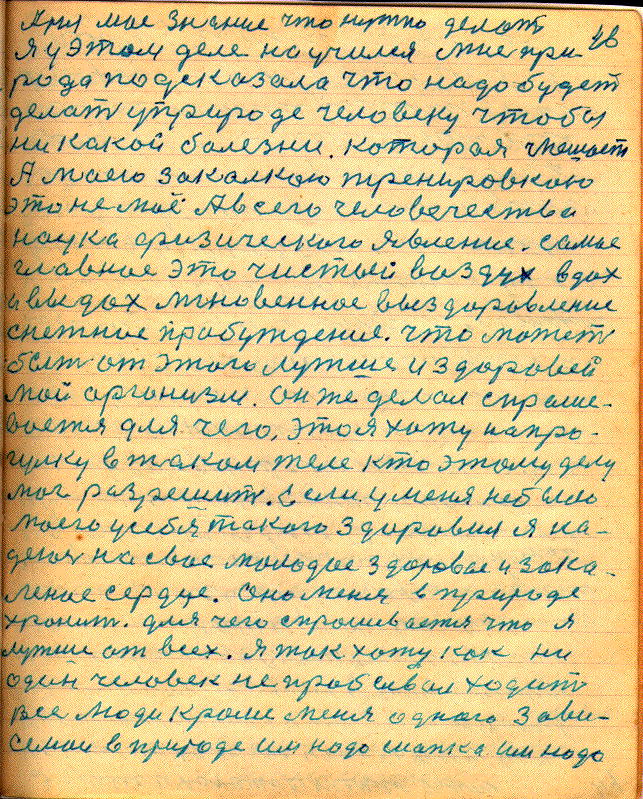 При мое знание что нужно делат
46
Я у этом деле научился мне при-
рода подсказала что надо будет
делат у природе человеку чтобы
никакой болезни. которая мешает
А моего закалкою тренировкою
это не моё А всего человечества
наука физического явление. самое
главное это чистый воздух вдох
и выдох мгновенное выздоровление
снежное пробуждение. что может
быт от этого лутше и здоровей
мой организм. Он же делал спраше-
вается для чего, это я хожу на про-
гулку в таком теле кто этому делу
мог разрешит. Если у меня не было
моего у себя такого здоровия я на-
деюс на свое молодое здоровое и зака-
леное сердце. Оно меня в природе
хронит. для чего спрошивается что я
лутше от всех. Я так хожу как ни
один человек не пробывал ходит
все люди кроме меня одного зави-
семои в природе им надо шапка им надо